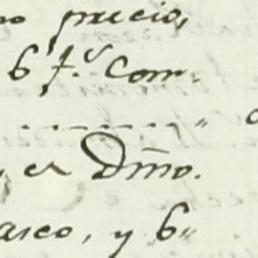 mo precio,
6 f.s Com-
.........."
, el Dmo.
asco, y 6"